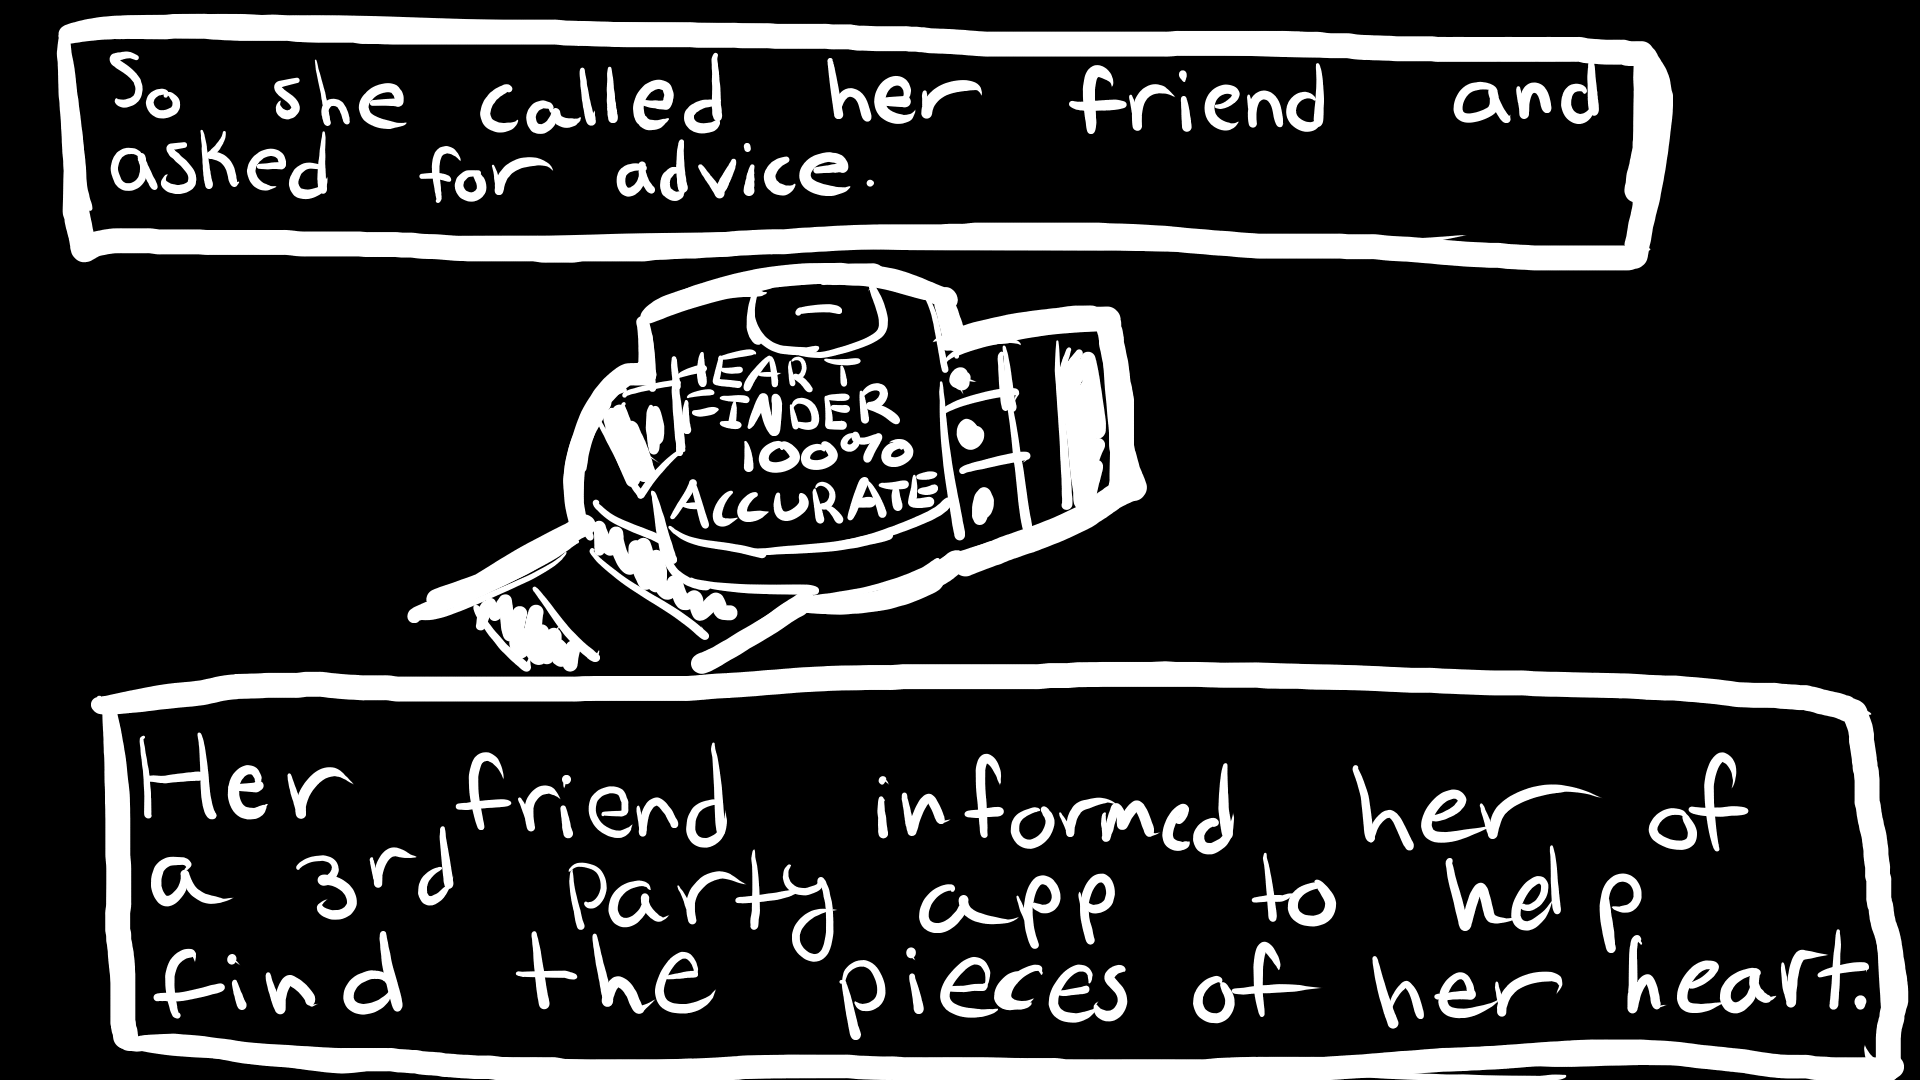 So she called her friend and
asked for advice.
HEART
FINDER
100%
ACCURATE
Her friend informed her of
a 3rd party app to help
find the pieces of her heart.